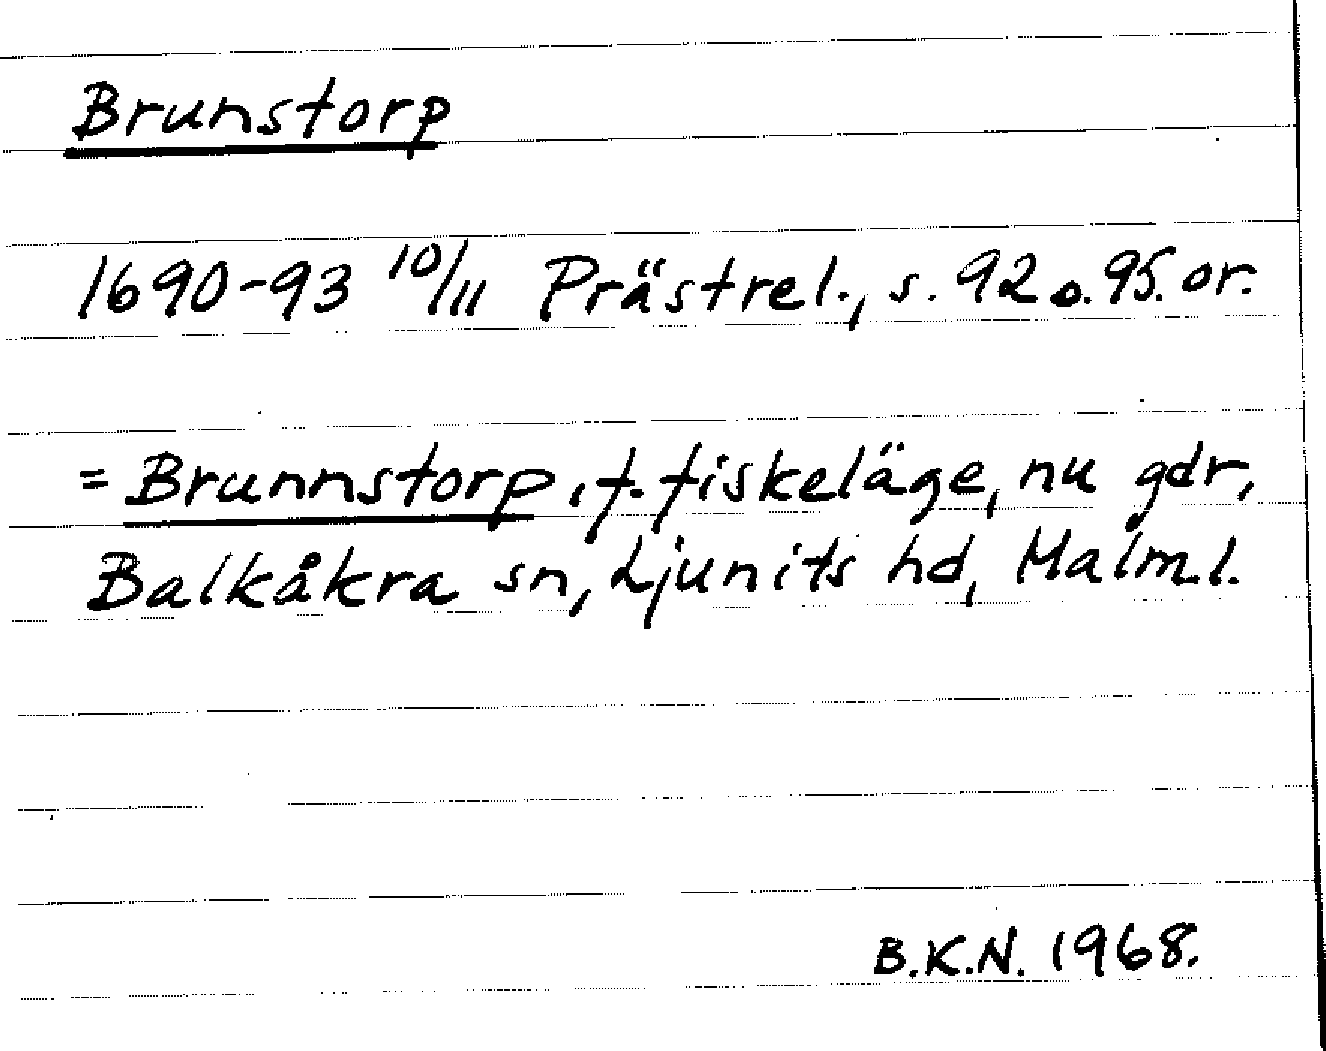 Brunstorp
1690-93 10/11 Prästrel., s. 92 o. 95. or.
= Brunnstorp, f. fiskeläge, nu gdr,
Balkåkra sn, Ljunits hd, Malm.l.
B.K.N. 1968.